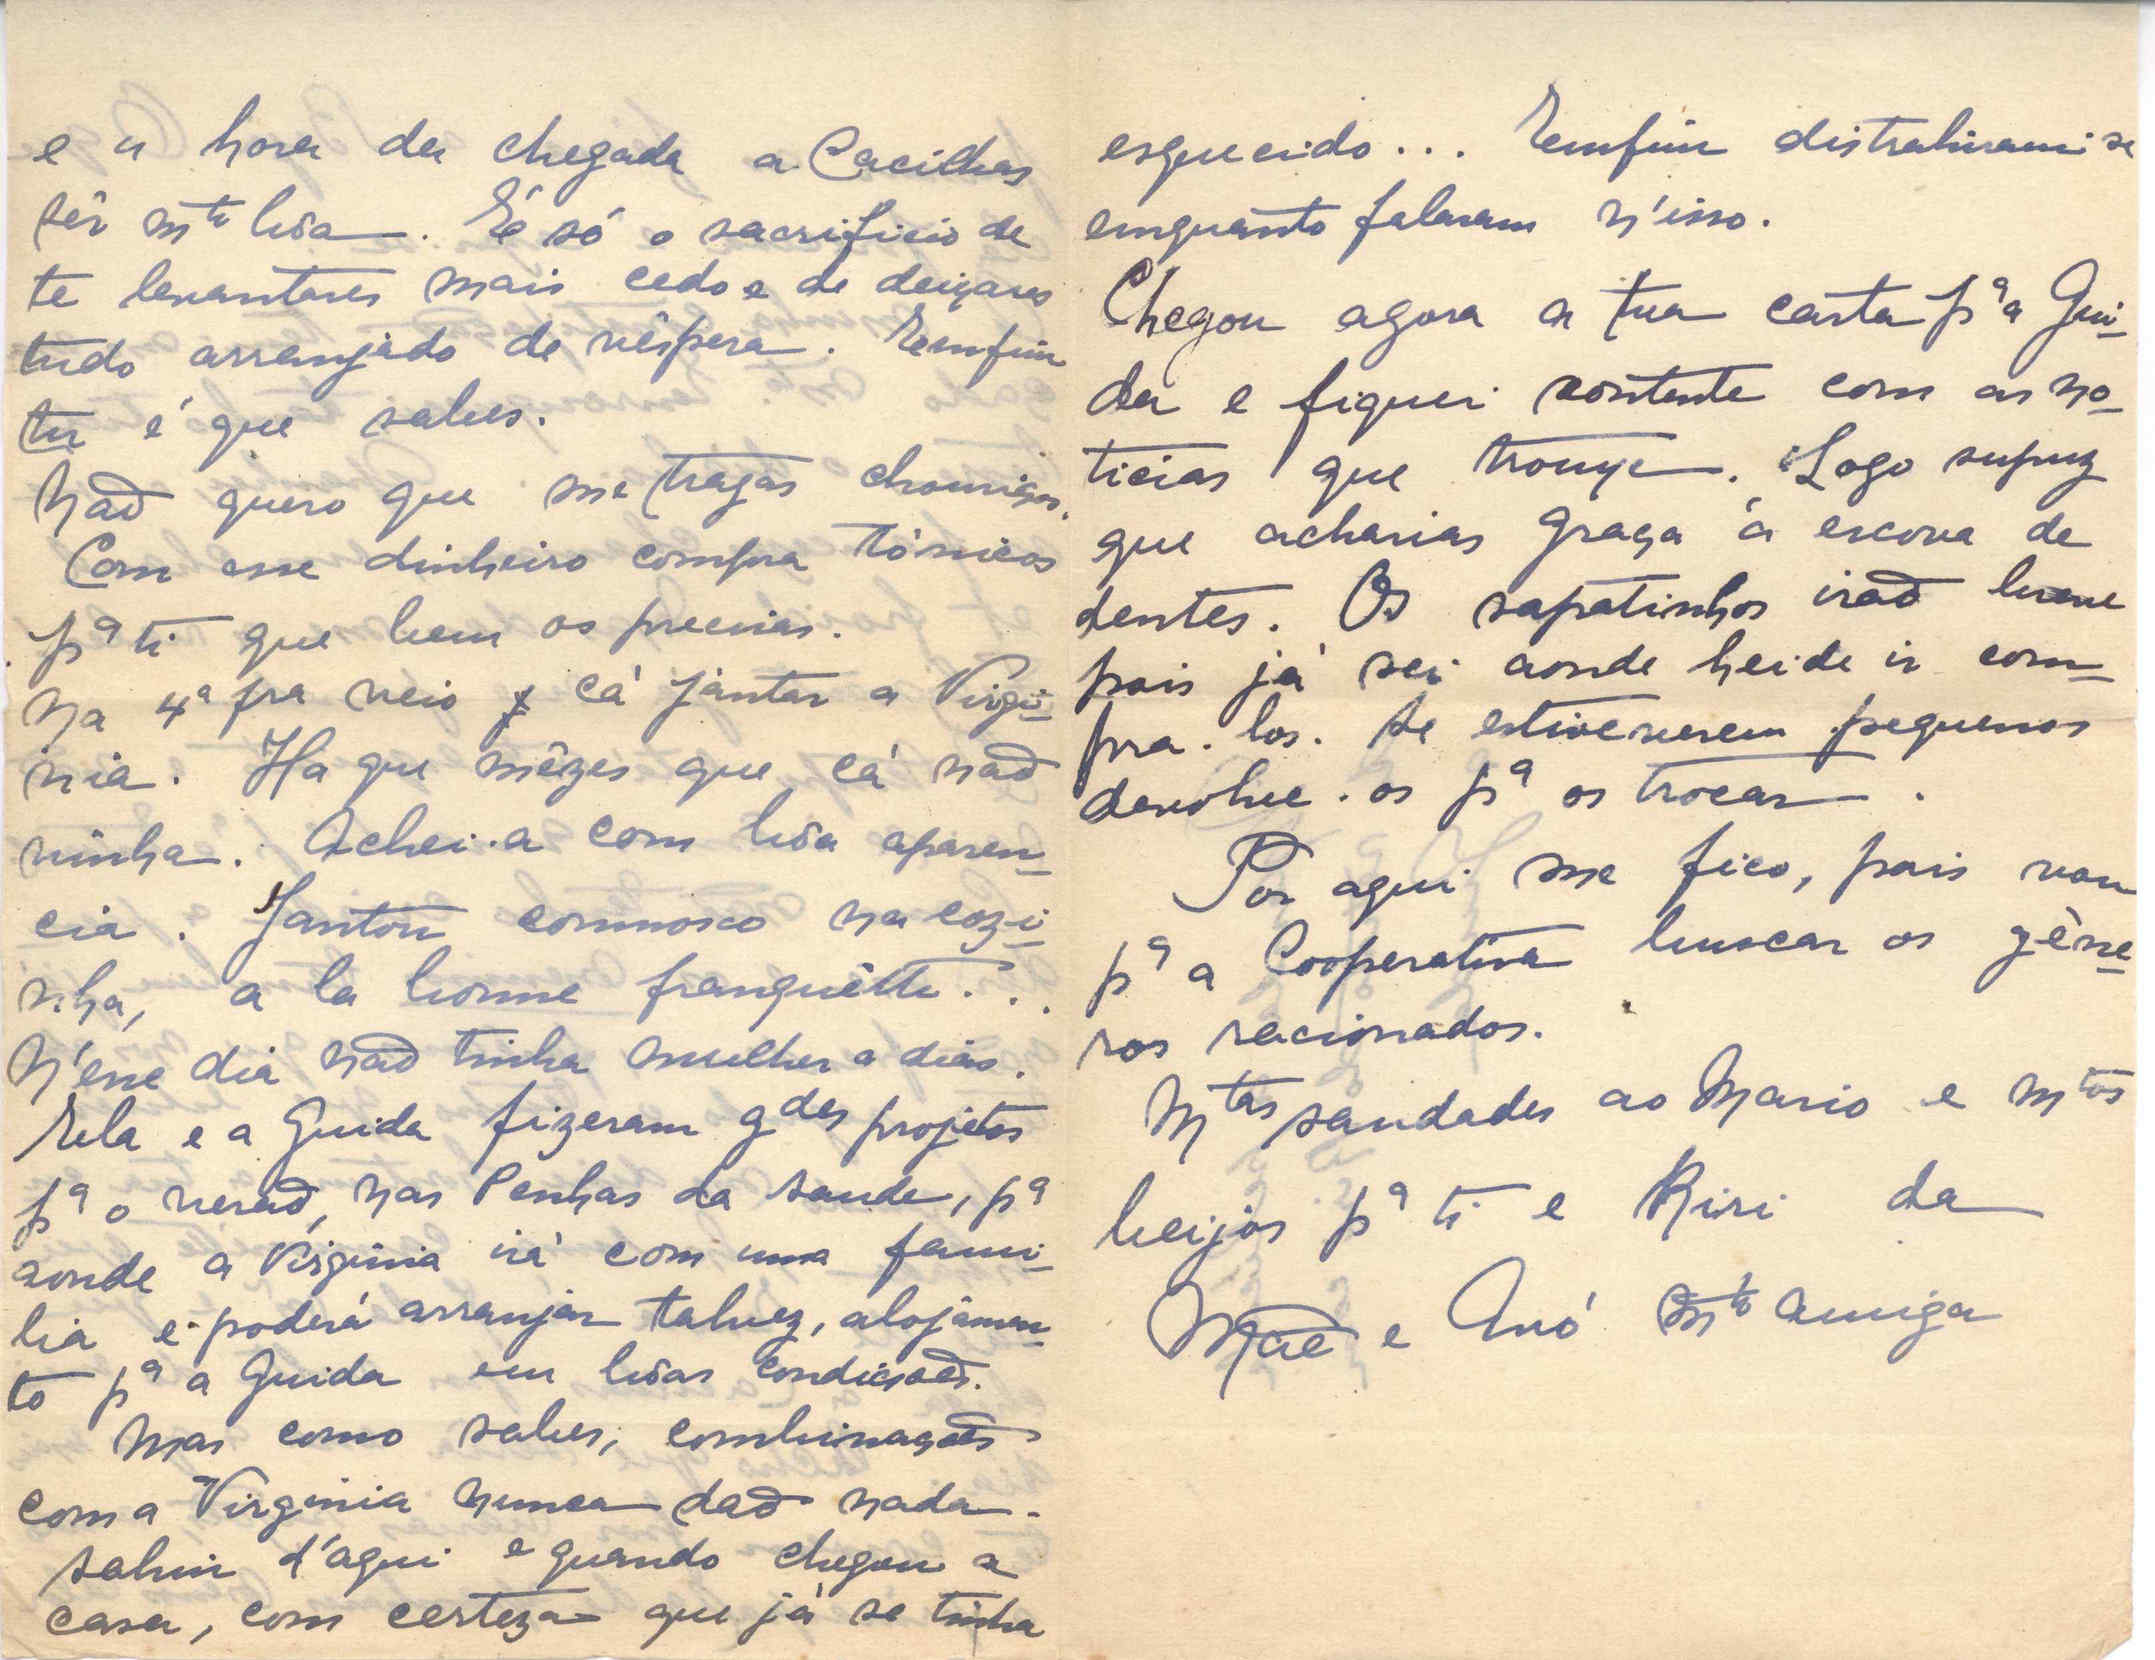 e a hora da chegada a Cacilhas
sêr mto bôa. É só o sacrificio de
te levantares mais cedo e de deixares
tudo arranjado de vêspera. Emfim
tu é que sabes.
Não quero que me tragas chouriços.
Com esse dinheiro compra tónicos
pª ti que bem os precisas.
Na 4ª fra veio cá jantar a Virgi-
nia. Ha que mêzes que cá não
vinha. Achei-a com bôa aparen-
cia. Jantou comnosco na cozi-
nha, a la bonne franquêtte...
N'esse dia não tinha mulher a dias.
Ela e a Guida fizeram gdes projetos
pª o verão, nas Penhas da Saude, pª
aonde a Virginia irá com uma fami-
lia e poderá arranjar talvez, alojamen-
to pª a Guida em bôas condições.
Mas como sabes, combinações
com a Virginia nunca dão nada.
Sahiu d'aqui e quando chegou a
casa, com certeza que já se tinha
esquecido... Emfim distrahiram-se
emquanto falaram n'isso.
Chegou agora a tua carta pª a Gui-
da e fiquei contente com as no-
ticias que trouxe. Logo supuz
que acharias graça á escova de
dentes. Os sapatinhos irão breve
pois já sei aonde heide ir com-
pra-los. Se estiverem pequenos
devolve-os pª os trocar.
Por aqui me fico, pois vou
pª a Cooperativa buscar os gêne-
ros racionados.
Mtas saudades ao Mario e mtos
beijos pª ti e Riri da
Mãe e Avó mto amiga